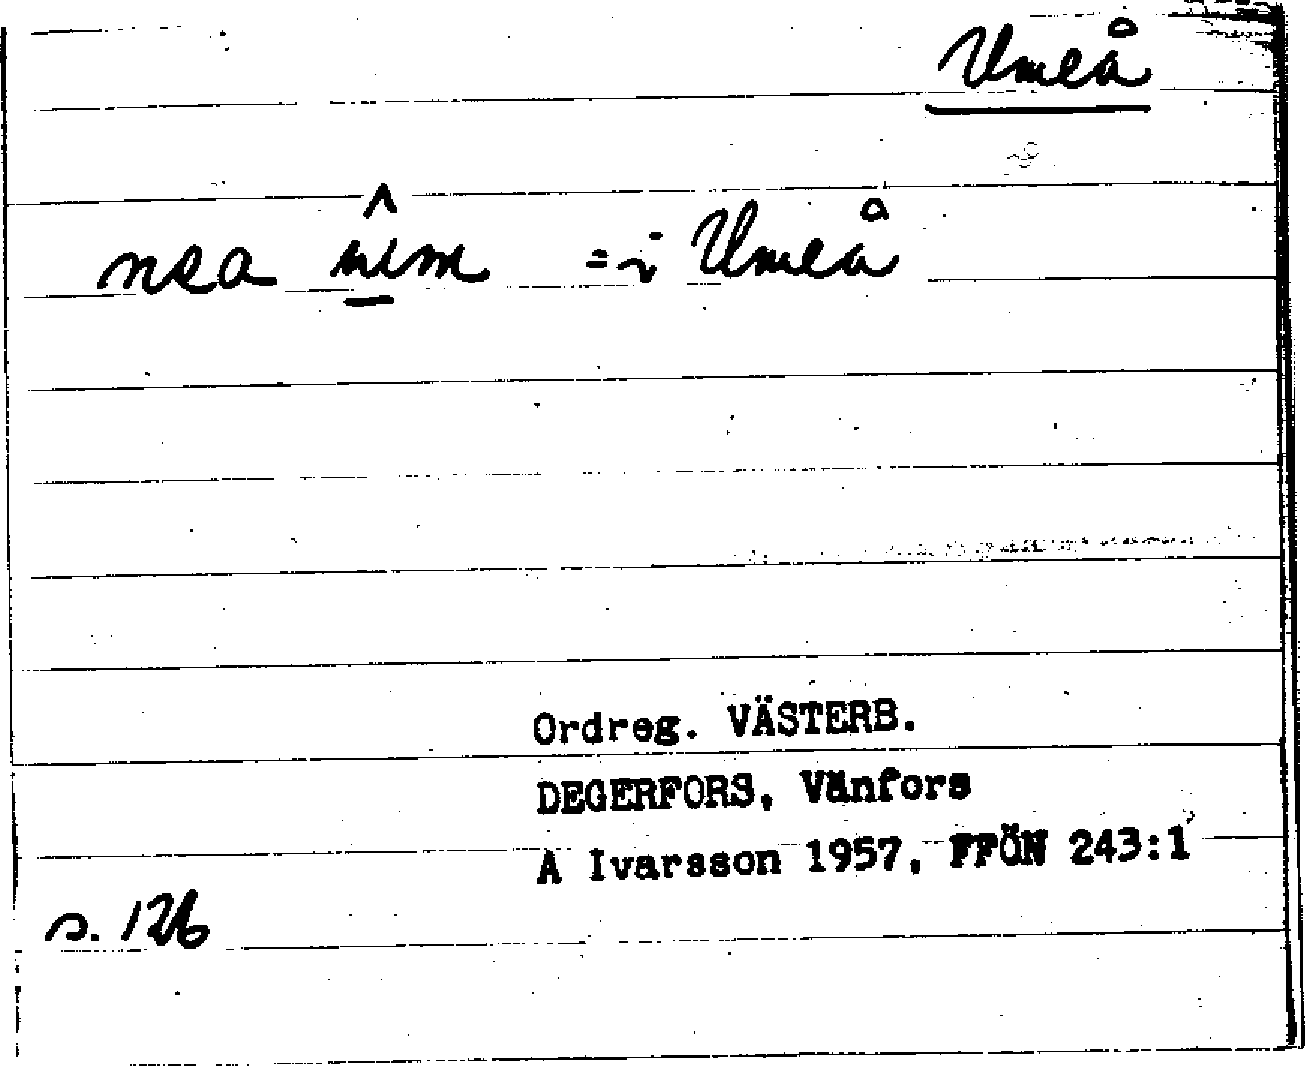 Umeå
nea = i Umeå
Ordreg. VÄSTERB.
DEGERFORS, Vänfors
A Ivarsson 1957, FFÖN 243:1
s. 126